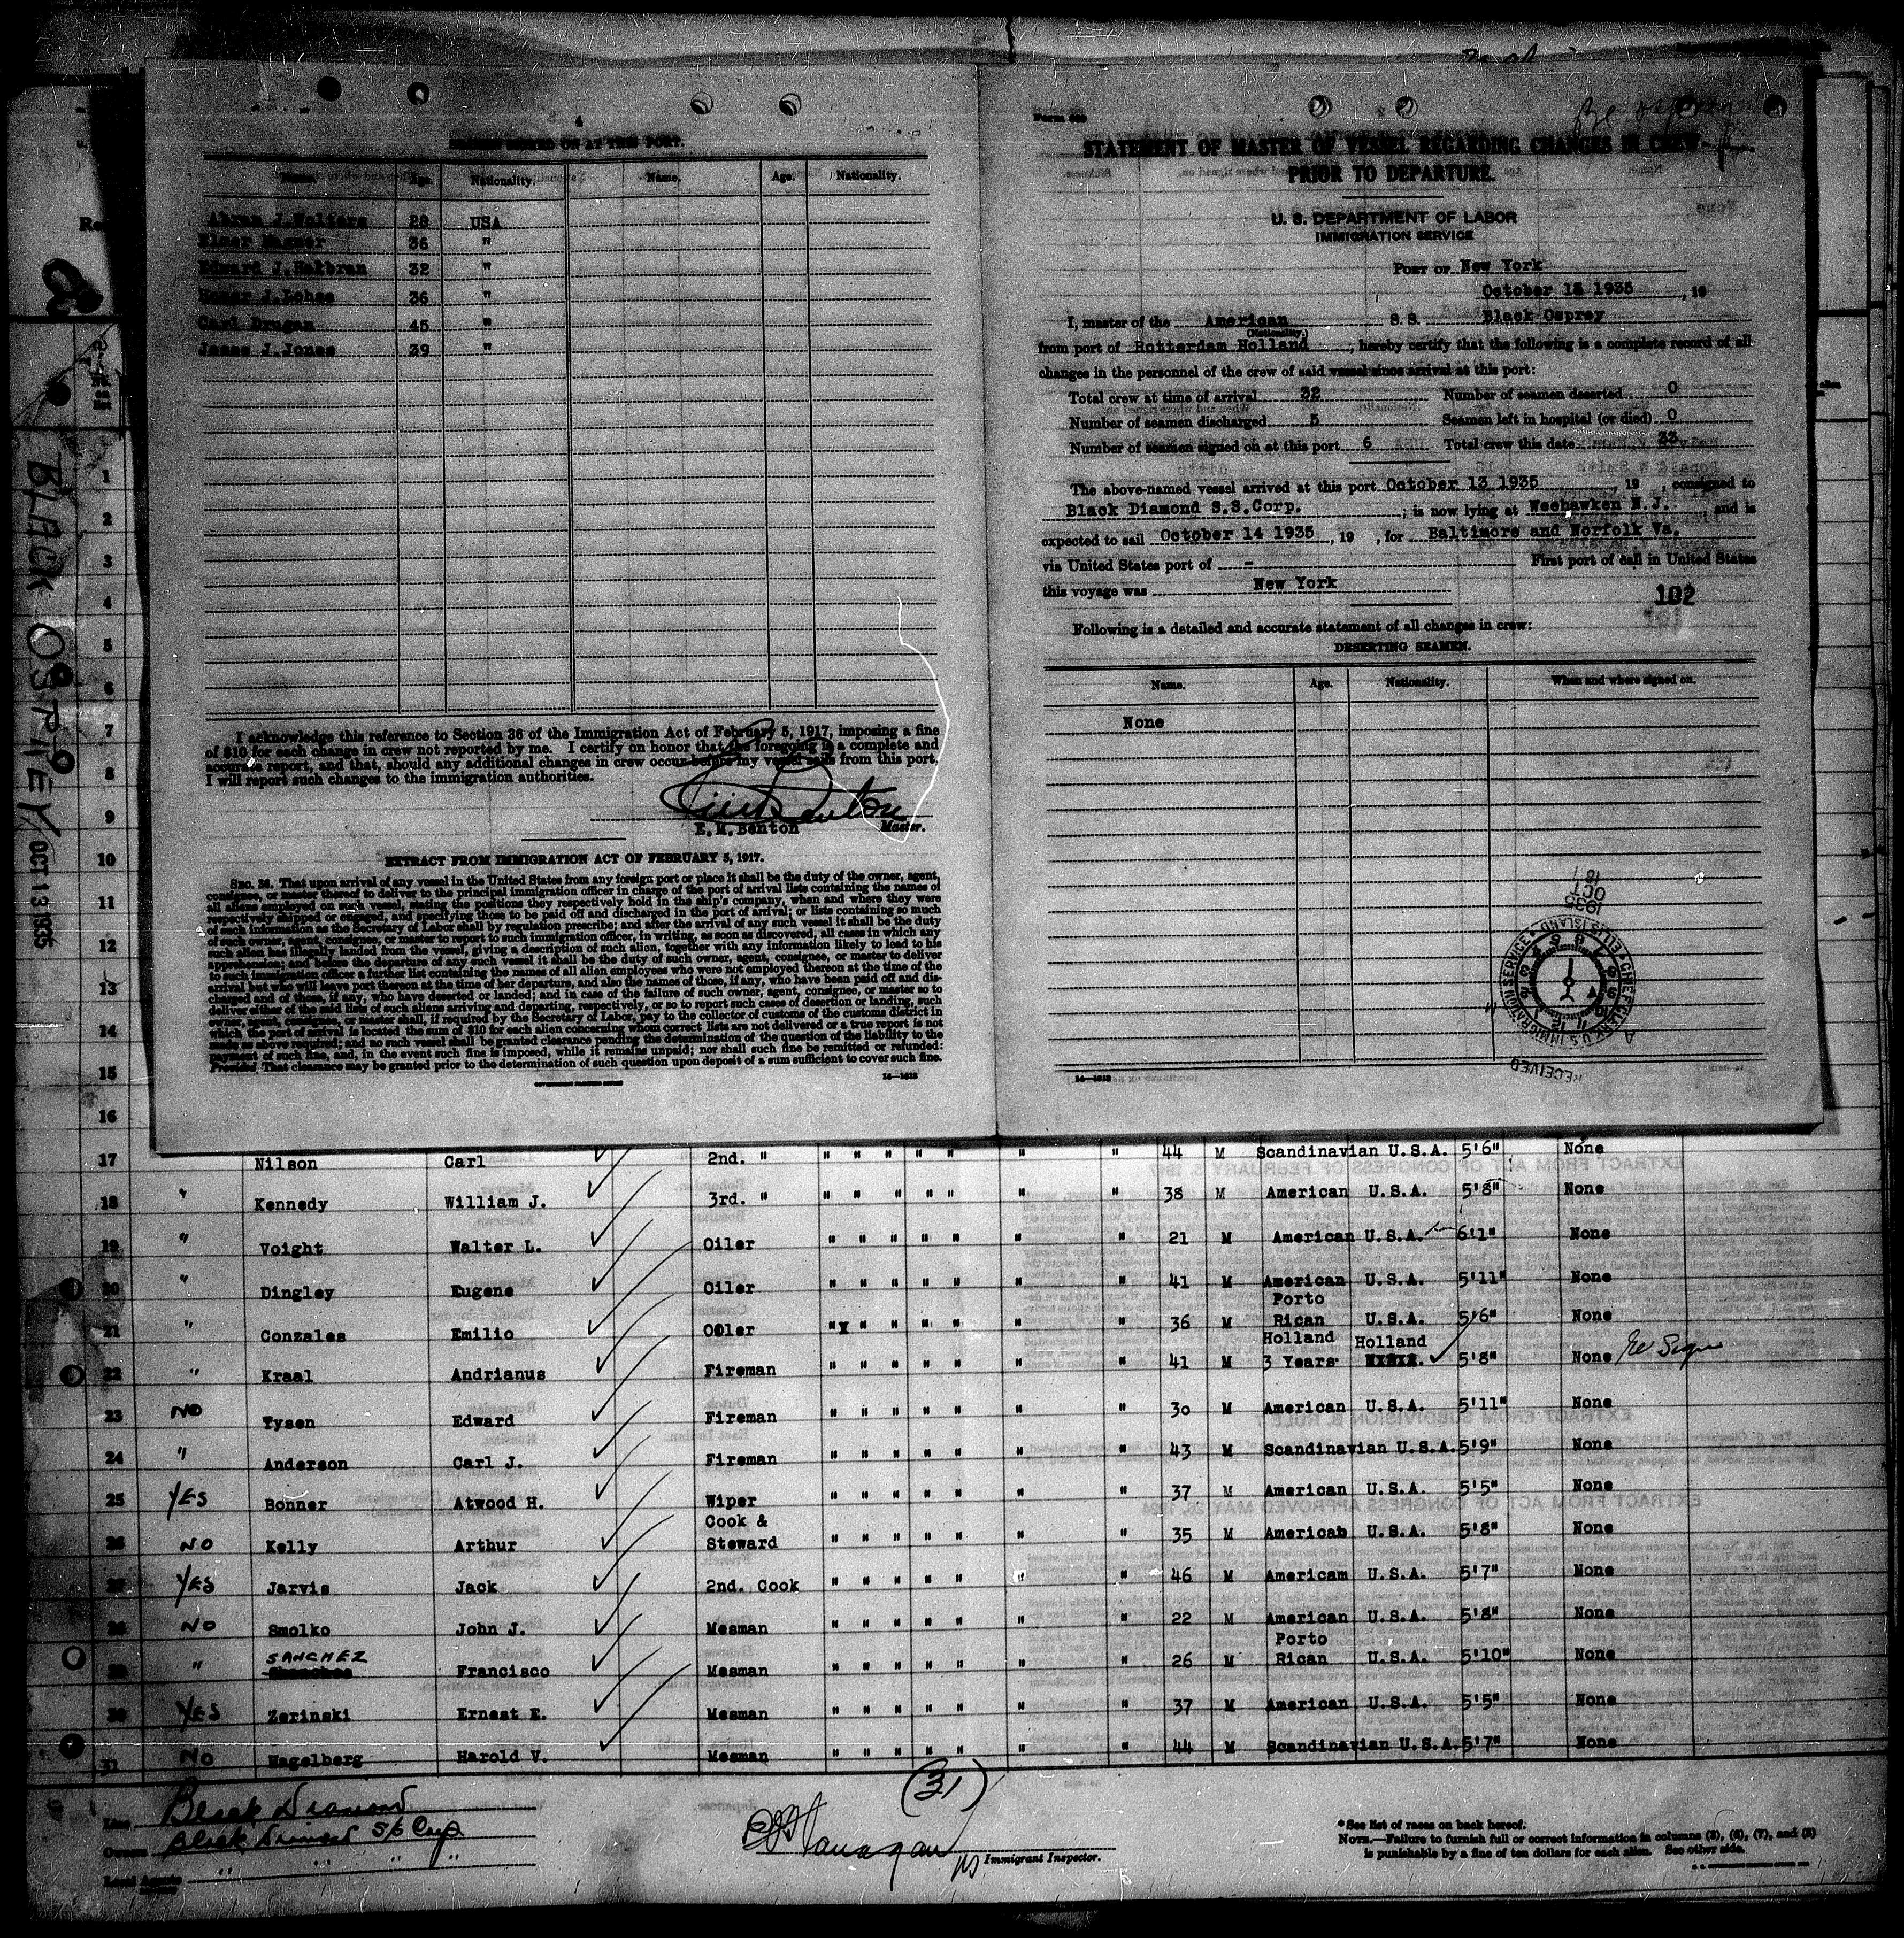 4
SEAMEN SIGNED ON AT THIS PORT.
Name. Age. Nationality. Name. Age. Nationality.
Abram J. Wolfers 28 USA
Elmer Wagner 36 "
Edward J. Halbran 32 "
J. Lohse 36 "
Carl Drugan 45 "
Jesse J. Jones 39 "
I acknowledge this reference to Section 36 of the Immigration Act of February 5, 1917, imposing a fine
of $10 for each change in crew not reported by me. I certify on honor that the foregoing is a complete and
accurate report, and that, should any additional changes in crew occur before my vessel sails from this port,
I will report such changes to the immigration authorities.
E. M. Benton Master.
EXTRACT FROM IMMIGRATION ACT OF FEBRUARY 5, 1917.
SEC. 36. That upon arrival of any vessel in the United States from any foreign port or place it shall be the duty of the owner, agent,
consignee, or master thereof to deliver to the principal immigration officer in charge of the port of arrival lists containing the names of
all aliens employed on such vessel, stating the positions they respectively hold in the ship's company, when and where they were
respectively shipped or engaged, and specifying those to be paid off and discharged in the port of arrival; or lists containing so much
of such information as the Secretary of Labor shall by regulation prescribe; and after the arrival of any such vessel it shall be the duty
of such owner, agent, consignee, or master to report to such immigration officer, in writing, as soon as discovered, all cases in which any
such alien has illegally landed from the vessel, giving a description of such alien, together with any information likely to lead to his
apprehension; and before the departure of any such vessel it shall be the duty of such owner, agent, consignee, or master to deliver
to such immigration officer a further list containing the names of all alien employees who were not employed thereon at the time of the
arrival but who will leave port thereon at the time of her departure, and also the names of those, if any, who have been paid off and dis-
charged and of those, if any, who have deserted or landed; and in case of the failure of such owner, agent, consignee, or master so to
deliver either of the said lists of such aliens arriving and departing, respectively, or so to report such cases of desertion or landing, such
owner, agent, consignee, or master shall, if required by the Secretary of Labor, pay to the collector of customs of the customs district in
which the port of arrival is located the sum of $10 for each alien concerning whom correct lists are not delivered or a true report is not
made as above required; and no such vessel shall be granted clearance pending the determination of the question of the liability to the
payment of such fine, and, in the event such fine is imposed, while it remains unpaid; nor shall such fine be remitted or refunded:
Provided, That clearance may be granted prior to the determination of such question upon deposit of a sum sufficient to cover such fine.
GOVERNMENT PRINTING OFFICE 14—1618
Form 689
STATEMENT OF MASTER OF VESSEL REGARDING CHANGES IN CREW
PRIOR TO DEPARTURE.
U. S. DEPARTMENT OF LABOR
IMMIGRATION SERVICE
PORT OF New York
October 15 1935, 19
I, master of the American S. S. Black Osprey
(Nationality.)
from port of Rotterdam Holland, hereby certify that the following is a complete record of all
changes in the personnel of the crew of said vessel since arrival at this port:
Total crew at time of arrival 32 Number of seamen deserted 0
Number of seamen discharged 5 Seamen left in hospital (or died) 0
Number of seamen signed on at this port 6 Total crew this date 33
The above-named vessel arrived at this port October 13 1935, 19 , consigned to
Black Diamond S.S.Corp. ; is now lying at Weehawken N.J. and is
expected to sail October 14 1935, 19 , for Baltimore and Norfolk Va.
via United States port of - First port of call in United States
this voyage was New York
102
Following is a detailed and accurate statement of all changes in crew:
DESERTING SEAMEN.
Name. Age. Nationality. When and where signed on.
None
1935
OCT
18
CHIEF CLERK U.S. IMMIGRATION SERVICE ELLIS ISLAND
RECEIVED
14—1618
BLACK OSPREY, OCT 13 1935
1
2
3
4
5
6
7
8
9
10
11
12
13
14
15
16
17 Nilson Carl 2nd. " " " " " " " " 44 M Scandinavian U.S.A. 5'6" None
18 " Kennedy William J. 3rd. " " " " " " " " 38 M American U.S.A. 5'8" None
19 " Voight Walter L. Oiler " " " " " " " 21 M American U.S.A. 6'1" None
20 " Dingley Eugene Oiler " " " " " " " 41 M American U.S.A. 5'11" None
21 " Conzales Emilio OOler " " " " " " " 36 M Porto Rican U.S.A. 5'6" None
22 " Kraal Andrianus Fireman " " " " " " " 41 M Holland 3 Years Holland 5'8" None
23 NO Tysen Edward Fireman " " " " " " " 30 M American U.S.A. 5'11" None
24 " Anderson Carl J. Fireman " " " " " " " 43 M Scandinavian U.S.A. 5'9" None
25 YES Bonner Atwood H. Wiper " " " " " " " 37 M American U.S.A. 5'5" None
26 NO Kelly Arthur Cook & Steward " " " " " " " 35 M Americab U.S.A. 5'8" None
27 YES Jarvis Jack 2nd. Cook " " " " " " " 46 M Americam U.S.A. 5'7" None
28 NO Smolko John J. Mesman " " " " " " " 22 M American U.S.A. 5'8" None
29 " SANCHEZ Francisco Mesman " " " " " " " 26 M Porto Rican U.S.A. 5'10" None
30 YES Zerinski Ernest E. Mesman " " " " " " " 37 M American U.S.A. 5'5" None
31 NO Hagelberg Harold V. Mesman " " " " " " " 44 M Scandinavian U.S.A. 5'7" None
(31)
Line Black Diamond
Owners Black Diamond S/S Corp
Local Agents " " " "
Immigrant Inspector.
*See list of races on back hereof.
NOTE.—Failure to furnish full or correct information in columns (5), (6), (7), and (8)
is punishable by a fine of ten dollars for each alien. See other side.